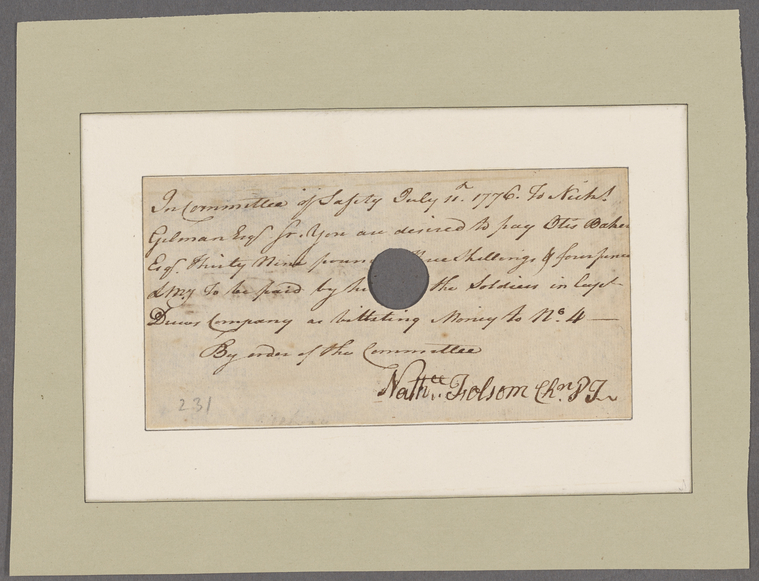 In Committee of Safety July 11th. 1776. To Nichs.
Gilman Esqr. Sr. You are desired to pay Otis Baker
Esqr. Thirty Nine poun Shillings & four pence
LMy To be paid by the Soldiers in Capt
Drews Company as billeting Money to No. 4 —
By order of the Committee
Nathll. Folsom Chn. P T
231